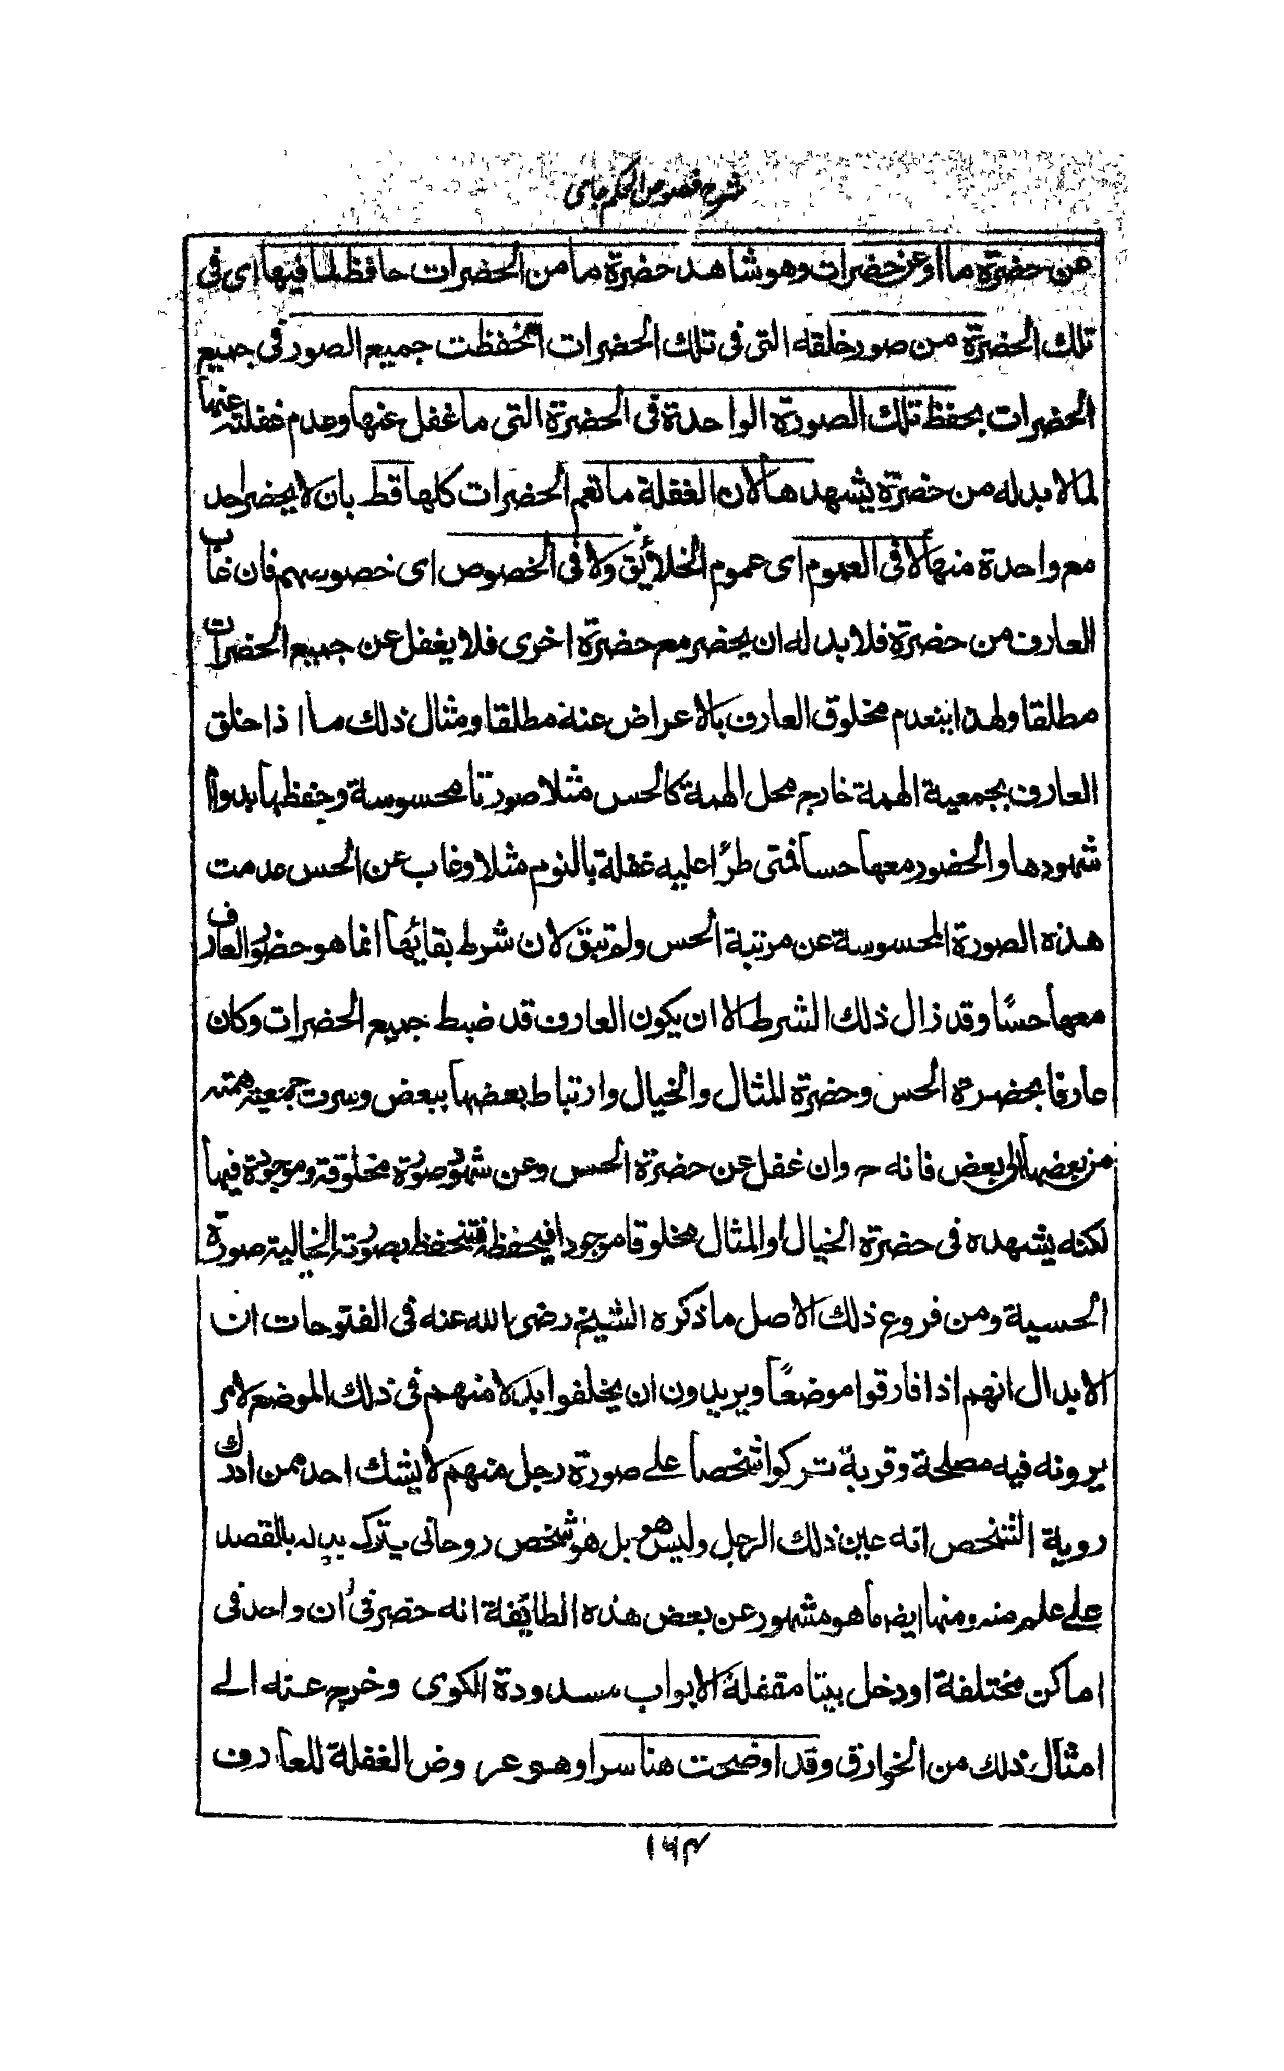 شرح فصوص الحكم جامى
عن حضرة ما اوعن حضرات وهو شاهد حضرة ما من الحضرات حافظ لما فيها اى فى
تلك الحضرة من صور خلقه التى فى تلك الحضرات انحفظت جميع الصور فى جميع
الحضرات بحفظ تلك الصورة الواحدة فى الحضرة التى ما غفل عنها وعدم غفلته عنها
لما لا بد له من حضرة يشهدها لان الغفلة ما تعم الحضرات كلها قط بان لا يحضر احد
مع واحدة منها لا فى العموم اى عموم الخلائق ولا فى الخصوص اى خصوصهم فان غاب
العارف من حضرة فلا بد له ان يحضر مع حضرة اخرى فلا يغفل عن جميع الحضرات
مطلقا ولهذا ينعدم مخلوق العارف بالاعراض عنه مطلقا ومثال ذلك ما اذا خلق
العارف بجمعية الهمة خارج محل الهمة كالحس مثلا صورتا محسوسة وحفظها بدوا
شهودها والحضور معها حسا فمتى طرأ عليه غفلة بالنوم مثلا وغاب عن الحس عدمت
هذه الصورة المحسوسة عن مرتبة الحس ولم تبق لان شرط بقائها انما هو حضور العارف
معها حسًا وقد زال ذلك الشرط الا ان يكون العارف قد ضبط جميع الحضرات وكان
عارفا بحضرة الحس وحضرة المثال والخيال وارتباط بعضها ببعض وسرت جمعية همته
من بعضها الى بعض فانه ح وان غفل عن حضرة الحس وعن شهود صورة مخلوقة وموجودة فيها
لكنه يشهده فى حضرة الخيال او المثال مخلوقا موجودا فيحفظه فتنحفظ بصورته الخيالية صورة
الحسية ومن فروع ذلك الاصل ما ذكره الشيخ رضى الله عنه فى الفتوحات ان
الابدال انهم اذا فارقوا موضعًا ويريدون ان يخلفوا بدلا منهم فى ذلك الموضع لامر
يرونه فيه مصلحة وقربة تركوا شخصا على صورة رجل منهم لا يشك احد ممن ادرك
روية الشخص انه عين ذلك الرجل وليس هو بل هو شخص روحانى يتركه بدله بالقصد
على علم منه ومنها ايضا ما هو مشهور عن بعض هذه الطائفة انه حضر فى ان واحد فى
اماكن مختلفة او دخل بيتا مقفلة الابواب مسدودة الكوى وخرج عنه الى
امثال ذلك من الخوارق وقد اوضحت هنا سرا وهو عروض الغفلة للعارف
١٦٤